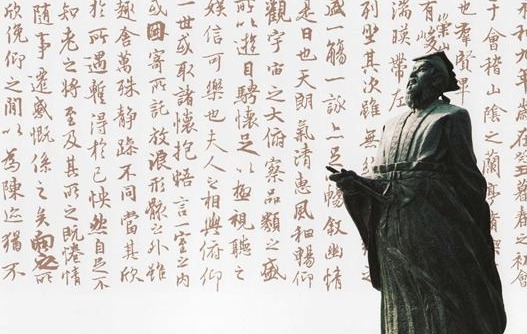 于會稽山陰之蘭亭脩
也羣賢畢
有崇山
湍暎帶左
列坐其次雖無
盛一觴一詠亦足以暢叙幽情
是日也天朗氣清惠風和暢仰
觀宇宙之大俯察品類之盛
所以遊目騁懷足以極視聽之
娛信可樂也夫人之相與俯仰
一世或取諸懷抱悟言一室之內
或因寄所託放浪形骸之外雖
趣舍萬殊靜躁不同當其欣
於所遇蹔得於己怏然自足不
知老之將至及其所之既惓情
隨事遷感慨係之矣向之所
欣俛仰之閒以為陳迹猶不